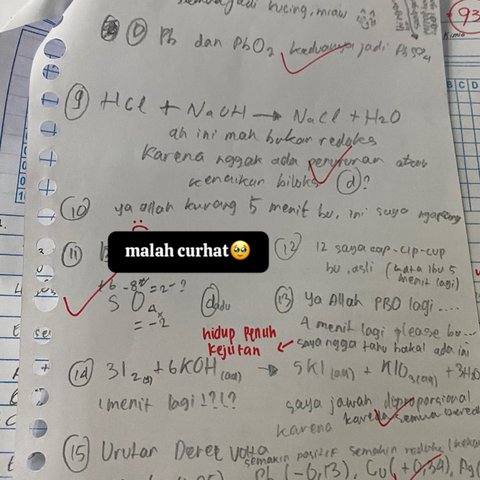 jadi kucing, miaw
93
Kimia
(8) (D) Pb dan PbO₂ keduanya jadi PbSO₄
(9) HCl + NaOH → NaCl + H₂O
ah ini mah bukan redoks
karena nggak ada penurunan atau
kenaikan biloks (d)?
(10) ya allah kurang 5 menit bu, ini saya ngapain
(11)
malah curhat🥹
(12) 12 saya cap-cip-cup
bu, asli (kata ibu 5
menit lagi)
+6 -8 = 2-?
SO₄
= -2
(d) adu
(13) Ya Allah PBO lagi....
4 menit lagi please bu...
saya ngga tahu bakal ada ini
hidup penuh
kejutan
(14) 3I₂(s) + 6KOH(aq) → 5KI(aq) + KIO₃(aq) + 3H₂O
1 menit lagi !?!?
saya jawab disproporsional
karena karena semua
(15) Urutan Deret Volta
semakin positif semakin
Pb (-0,13), Cu (+0,34), Ag(